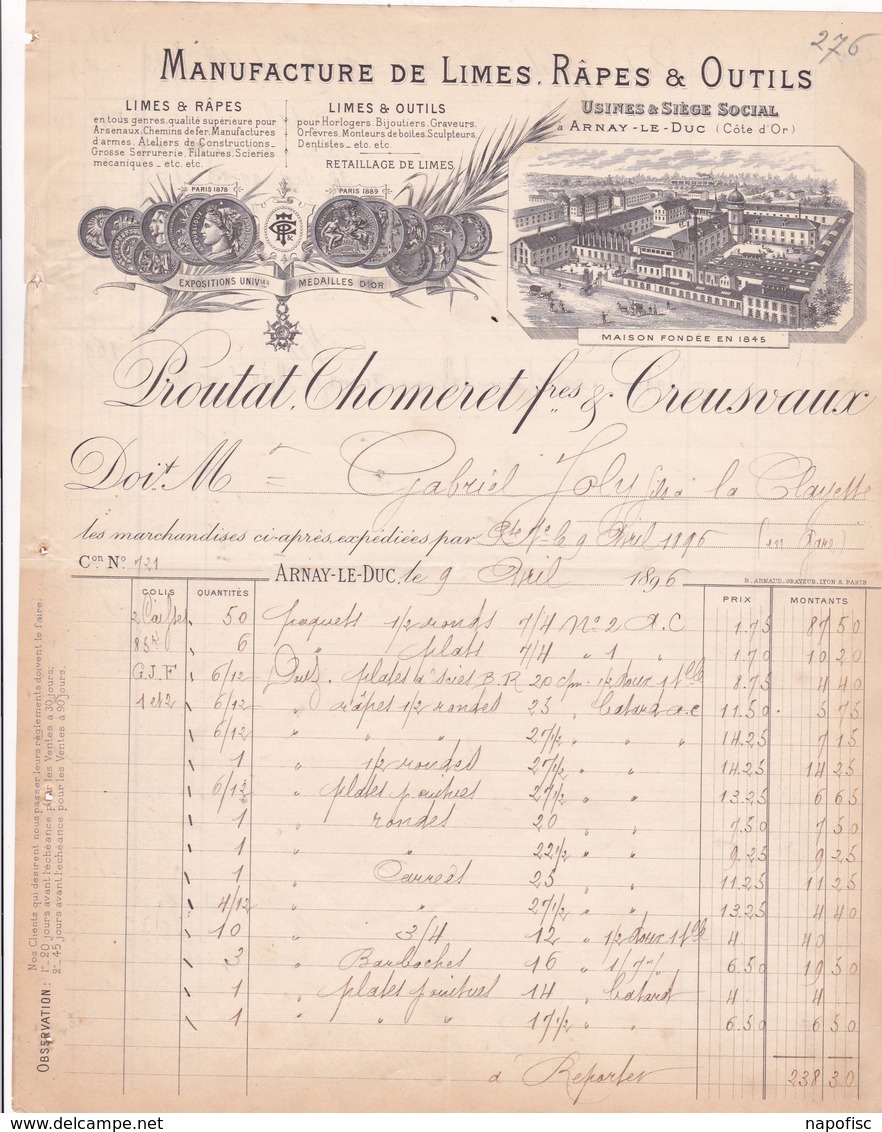 276
MANUFACTURE DE LIMES, RÂPES & OUTILS
LIMES & RÂPES
en tous genres, qualité supérieure pour
Arsenaux, Chemins de fer, Manufactures
d'armes, Ateliers de Constructions_
Grosse Serrurerie, Filatures, Scieries
mécaniques_ etc. etc.
LIMES & OUTILS
pour Horlogers, Bijoutiers, Graveurs,
Orfèvres, Monteurs de boites, Sculpteurs,
Dentistes_ etc. etc.
RETAILLAGE DE LIMES
USINES & SIÈGE SOCIAL
à ARNAY-LE-DUC (Côte d'Or)
PARIS 1878
PARIS 1889
EXPOSITIONS UNIVles
MÉDAILLES D'OR
MAISON FONDÉE EN 1845
Proutat, Thomeret fres & Creusvaux
Doit M = Gabriel Joly fils à la Clayette
les marchandises ci-après, expédiées par le 9 Avril 1896 (en gare)
Con No 721
ARNAY-LE-DUC, le 9 Avril 1896
B. ARNAUD, GRAVEUR, LYON & PARIS
COLIS QUANTITÉS PRIX MONTANTS
50 paquets 1/2 ronds 7/4 No 2 A.C 1.75 87 50
6 " plats 7/4 " 1 " 1.70 10 20
G.J.F 6/12 Douz. plates à scies B.R 20 c/m 1/2 doux 1 tlle 8.75 4 40
1 et 2 6/12 " râpes 1/2 rondes 25 " batard a.c 11.50 5 75
6/12 " " " 27 1/2 " " " 14.25 7 15
1 " 1/2 rondes 27 1/2 " " 14.25 14 25
6/12 " plates pointues 27 1/2 " " 13.25 6 65
1 " rondes 20 " " 7.50 7 50
1 " " 22 1/2 " " 9.25 9 25
1 " Carrées 25 " " 11.25 11 25
4/12 " " 27 1/2 " " 13.25 4 40
10 " 3/4 12 " 1/2 doux 1 tlle 4 40
3 " Barboches 16 " 6.50 19 50
1 " plates pointues 14 " batard 4 4
1 " " 17 1/2 " " 6.50 6 50
à Reporter 238 30
OBSERVATION: Nos Clients qui désirent nous passer leurs règlements doivent le faire:
1o_ 20 jours avant l'échéance pour les Ventes à 30 jours;
2o_ 45 jours avant l'échéance pour les Ventes à 90 jours.
napofisc